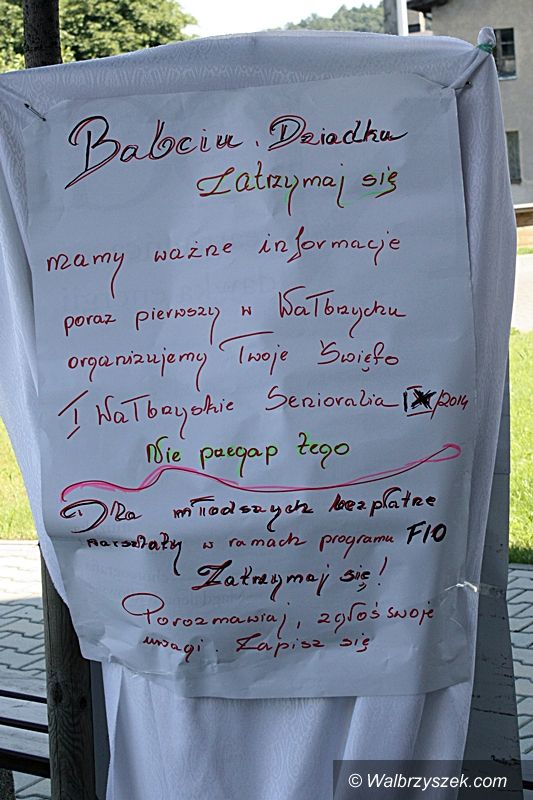 Babciu. Dziadku
Zatrzymaj się
mamy ważne informacje
poraz pierwszy w Wałbrzychu
organizujemy Twoje Święto
I Wałbrzyskie Senioralia IX/2014
Nie paegap tego
Dla młodszych bezpłatne
warsztaty w ramach programu FIO
Zatrzymaj się!
Porozmawiaj, zgłoś swoje
uwagi. Zapisz się
© Walbrzyszek.com